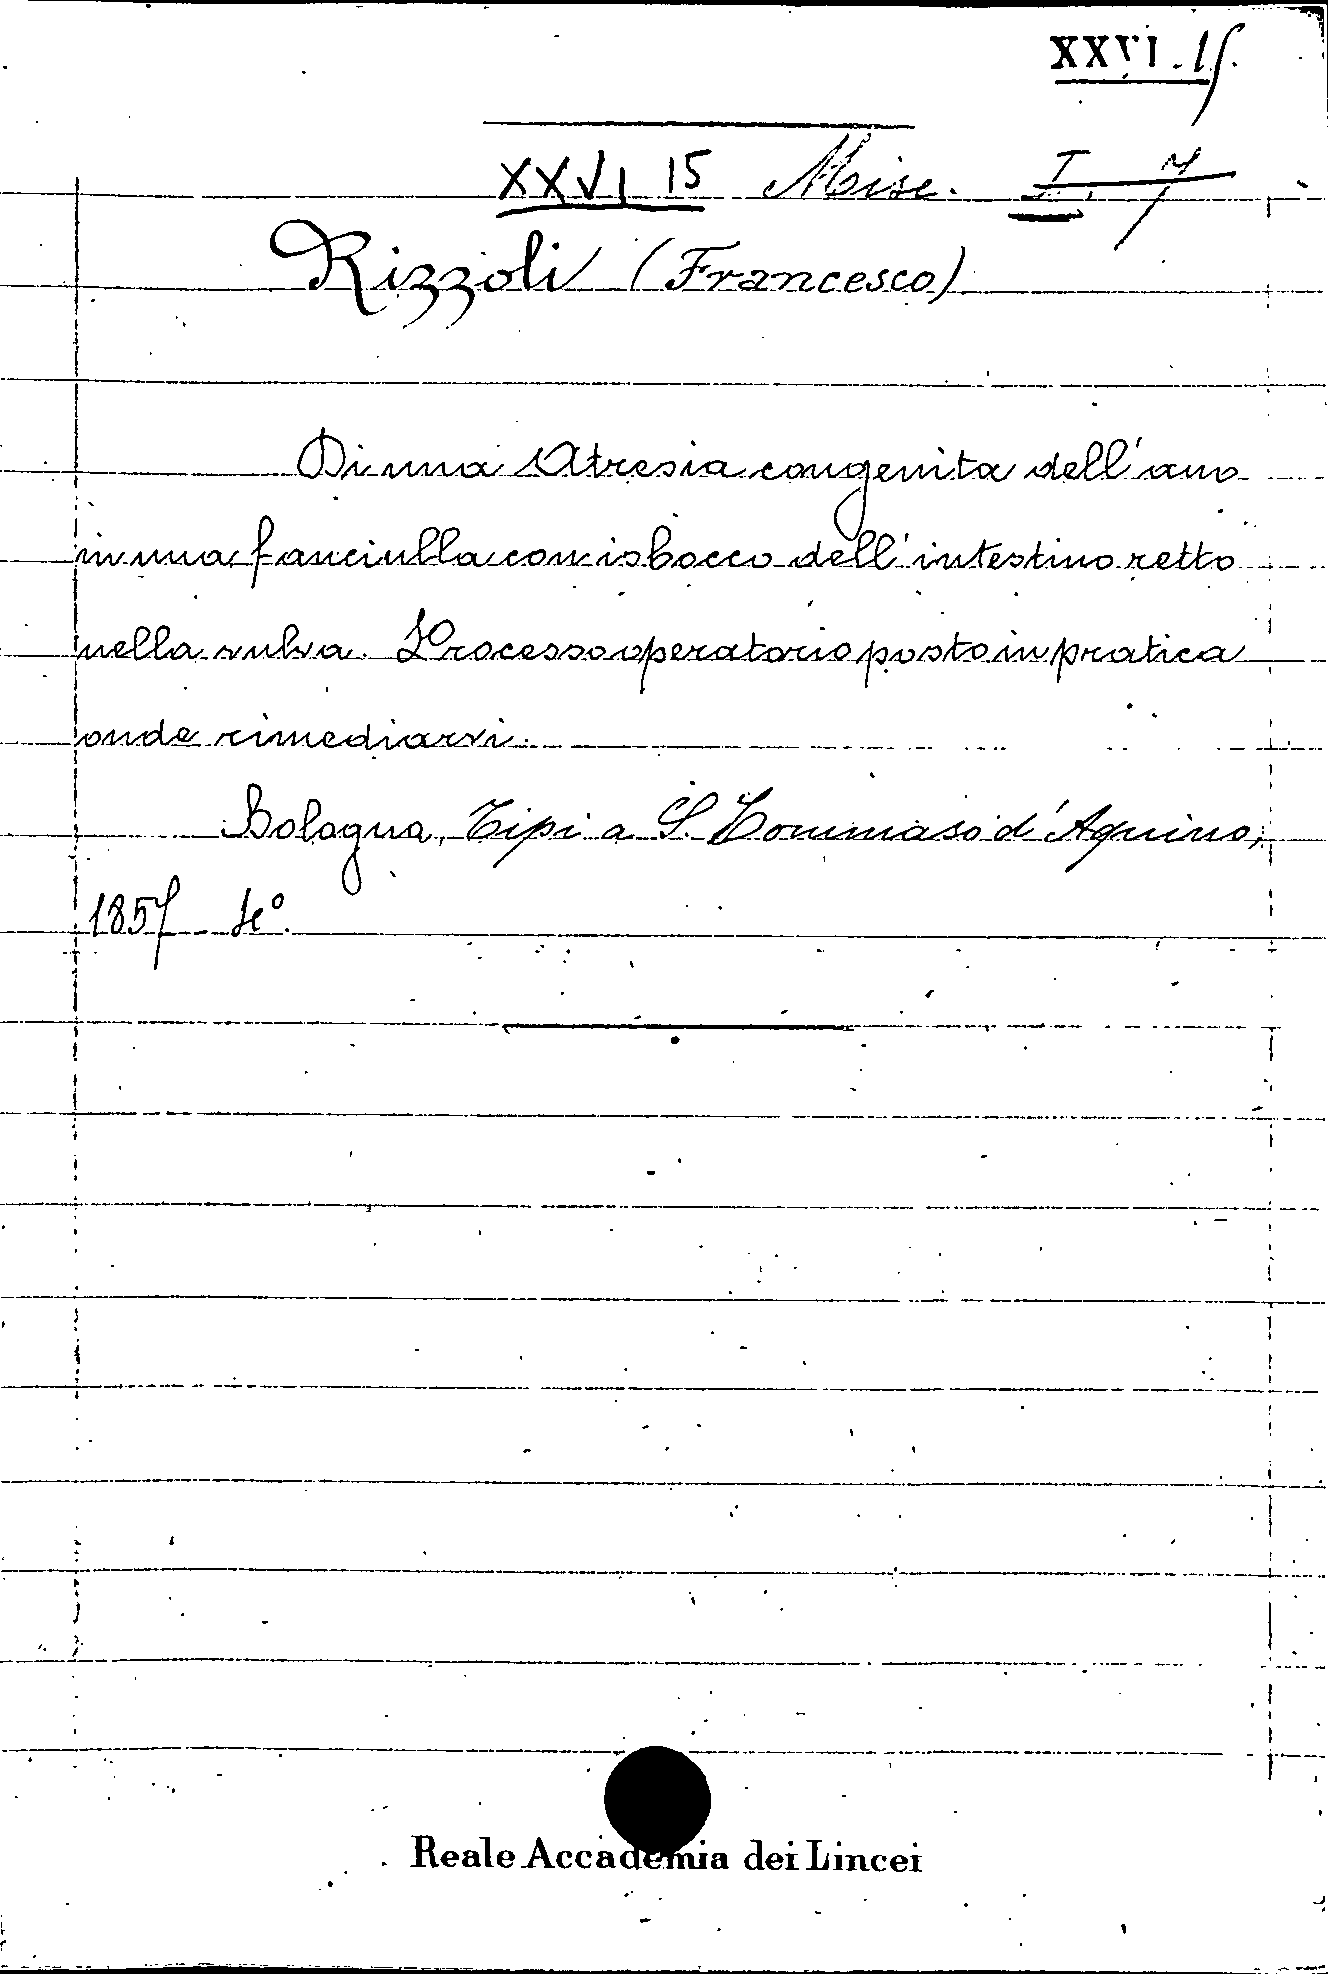 XXVI. 15.
XXVI 15 Misc. I. 7
Rizzoli (Francesco)
Di una Atresia congenita dell'ano
in una fanciulla con isbocco dell'intestino retto
nella vulva. Processo operatorio posto in pratica
onde rimediarvi.
Bologna, Tipi a S. Tommaso d'Aquino,
1857 4º.
Reale Accademia dei Lincei